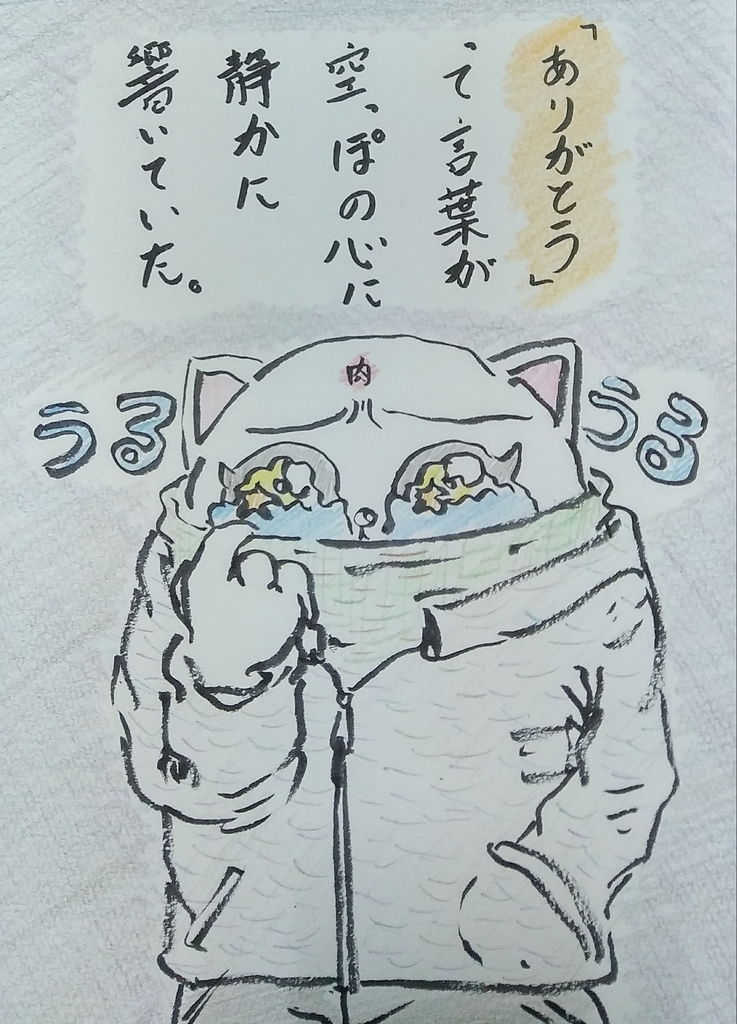 「ありがとう」
って言葉が
空っぽの心に
静かに
響いていた。
肉
うる
うる